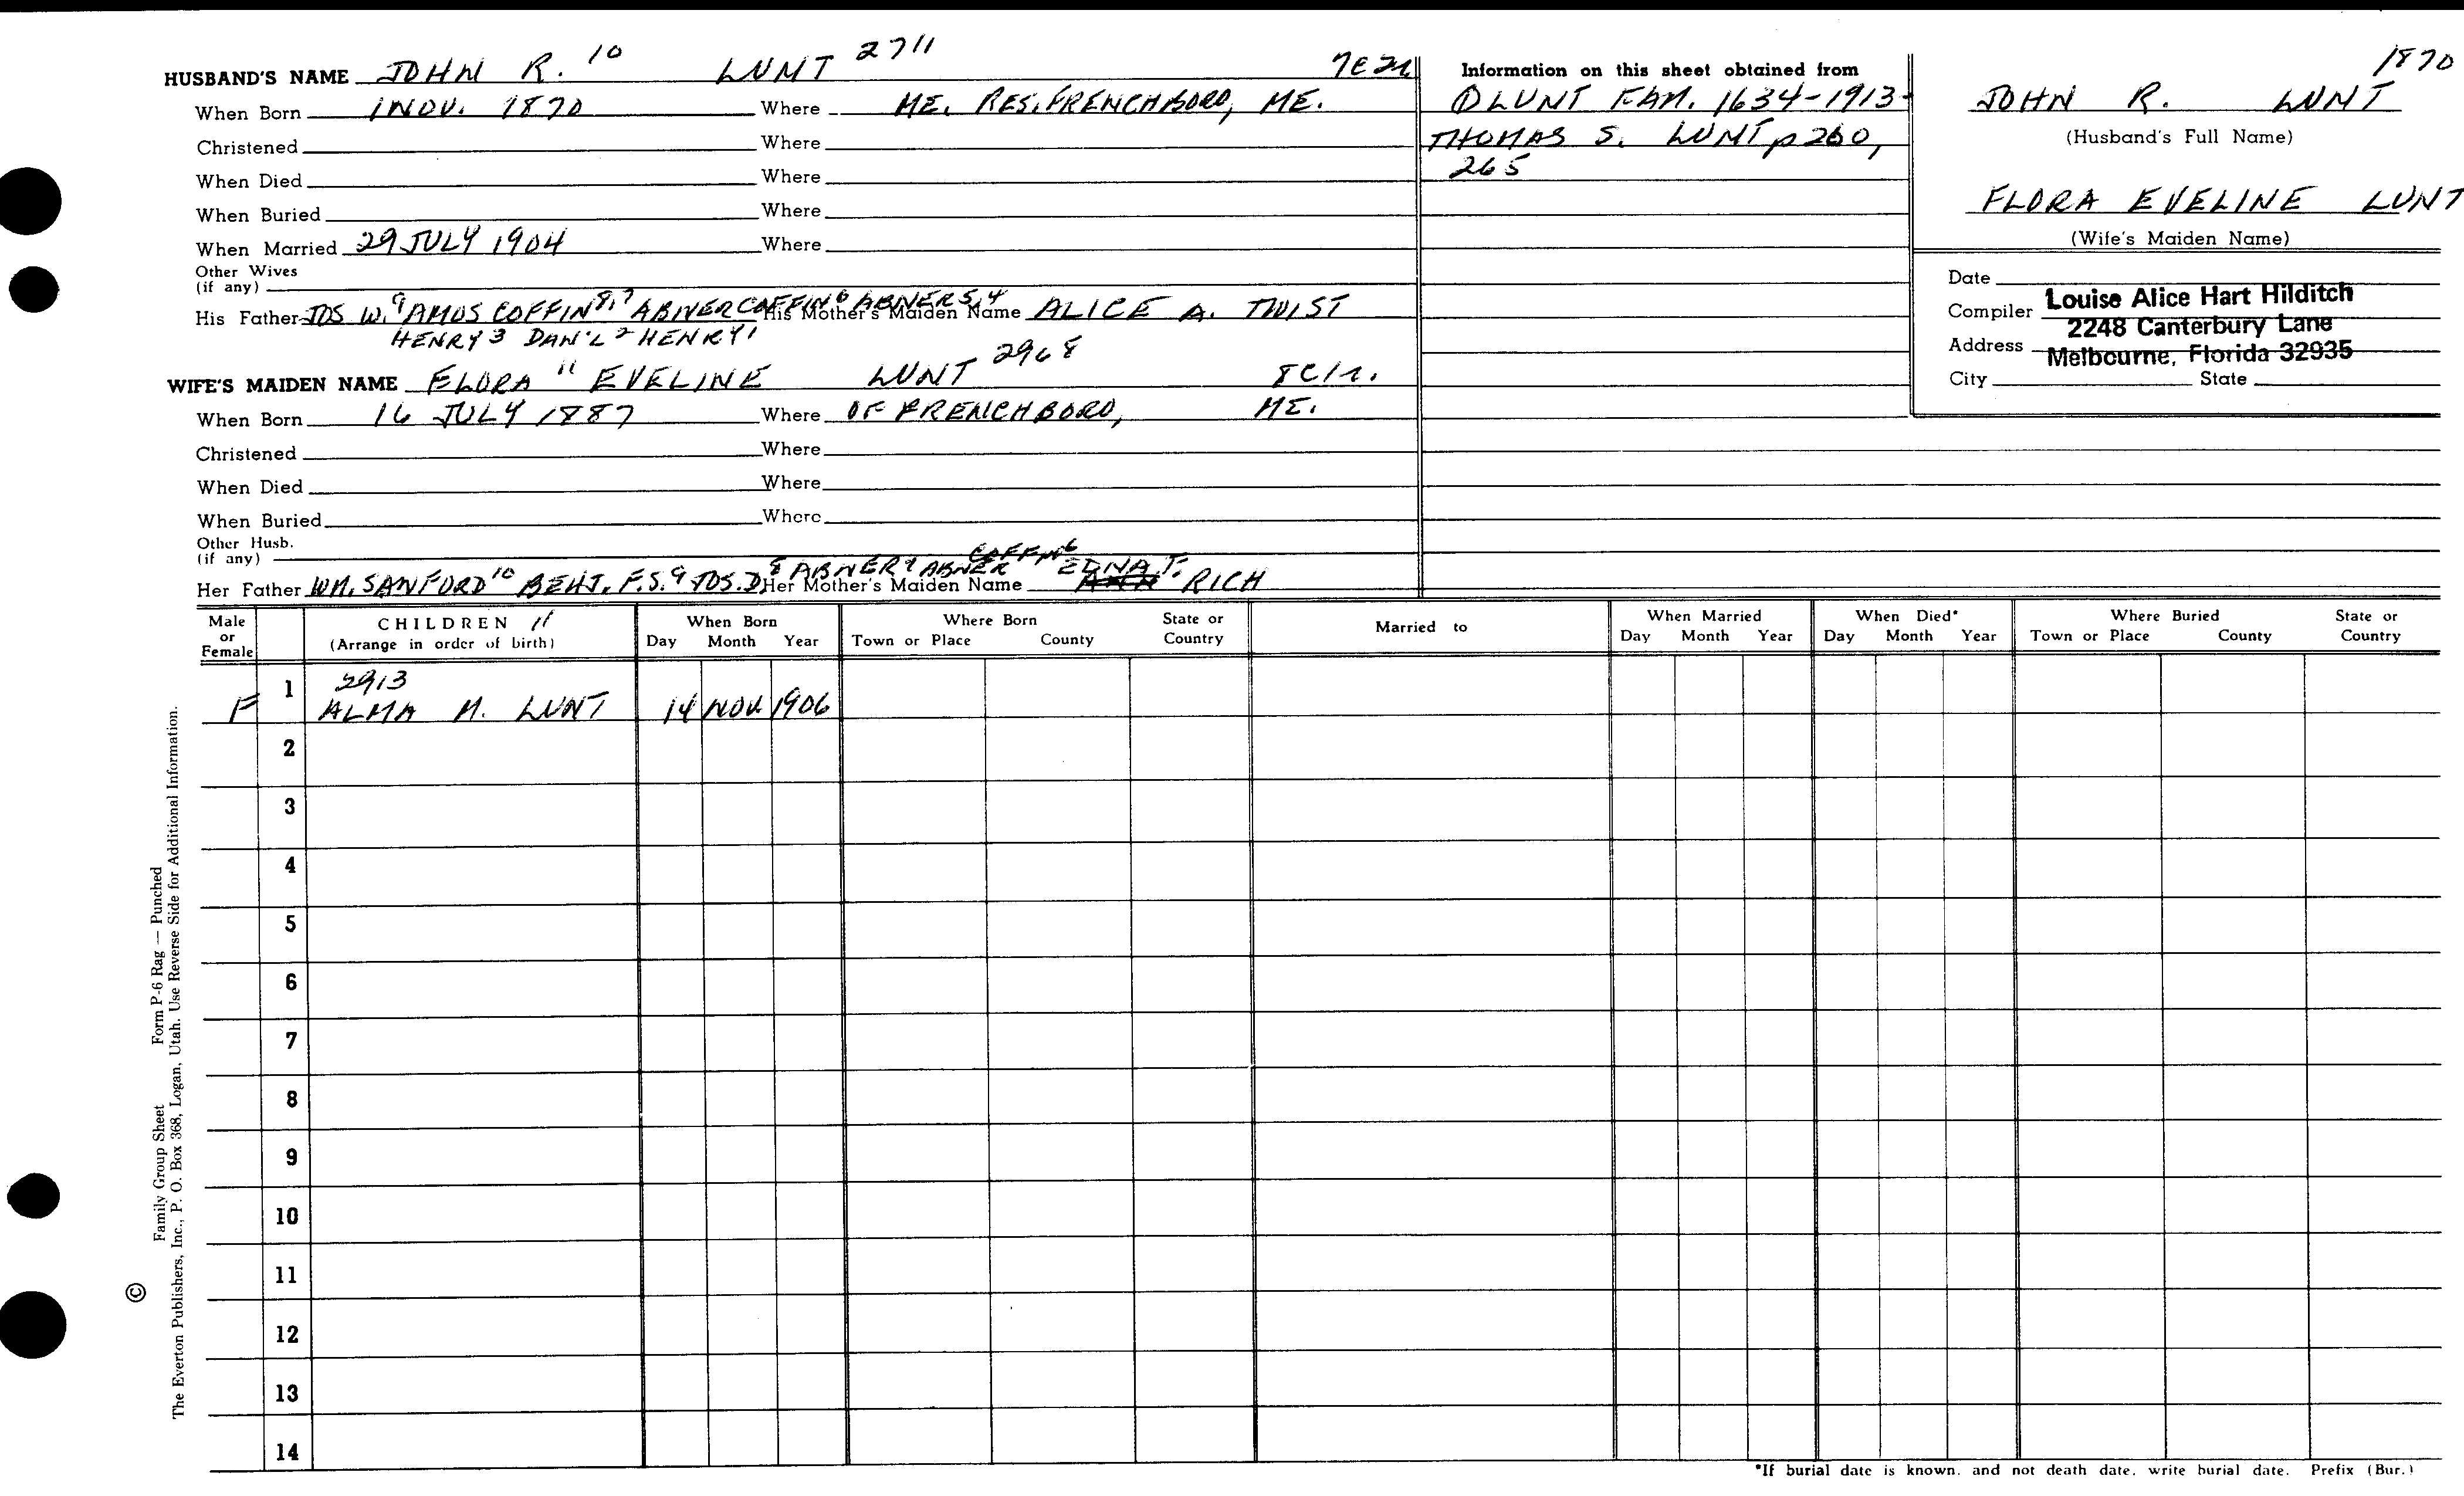 HUSBAND'S NAME JOHN R. 10 LUNT 2711
When Born 1 NOV. 1870 Where ME. RES. FRENCHBORO, ME.
Christened Where
When Died Where
When Buried Where
When Married 29 JULY 1904 Where
Other Wives
(if any)
His Father JOS W. 9 AMOS COFFIN 8,7 ABNER COFFIN 6 ABNER 5,4 His Mother's Maiden Name ALICE A. TWIST
HENRY 3 DAN'L 2 HENRY 1
WIFE'S MAIDEN NAME FLORA 11 EVELINE LUNT 2968
When Born 16 JULY 1887 Where OF FRENCHBORO, ME.
Christened Where
When Died Where
When Buried Where
Other Husb.
(if any)
COFFIN 6
Her Father WM. SANFORD 10 BENJ. F.S. 9 JOS. D. 8 ABNER 7 ABNER Her Mother's Maiden Name EDNA T. RICH
Information on this sheet obtained from
① LUNT FAM. 1634-1913-
THOMAS S. LUNT p 260,
265
1870
JOHN R. LUNT
(Husband's Full Name)
FLORA EVELINE LUNT
(Wife's Maiden Name)
Date
Compiler Louise Alice Hart Hilditch
2248 Canterbury Lane
Address Melbourne, Florida 32935
City State
Male or Female
CHILDREN 11
(Arrange in order of birth)
When Born
Day Month Year
Where Born
Town or Place County State or Country
Married to
When Married
Day Month Year
When Died*
Day Month Year
Where Buried
Town or Place County State or Country
2913
F 1 ALMA M. LUNT 14 NOV. 1906
2
3
4
5
6
7
8
9
10
11
12
13
14
*If burial date is known, and not death date, write burial date. Prefix (Bur.)
© Family Group Sheet Form P-6 Rag — Punched
The Everton Publishers, Inc., P. O. Box 368, Logan, Utah. Use Reverse Side for Additional Information.